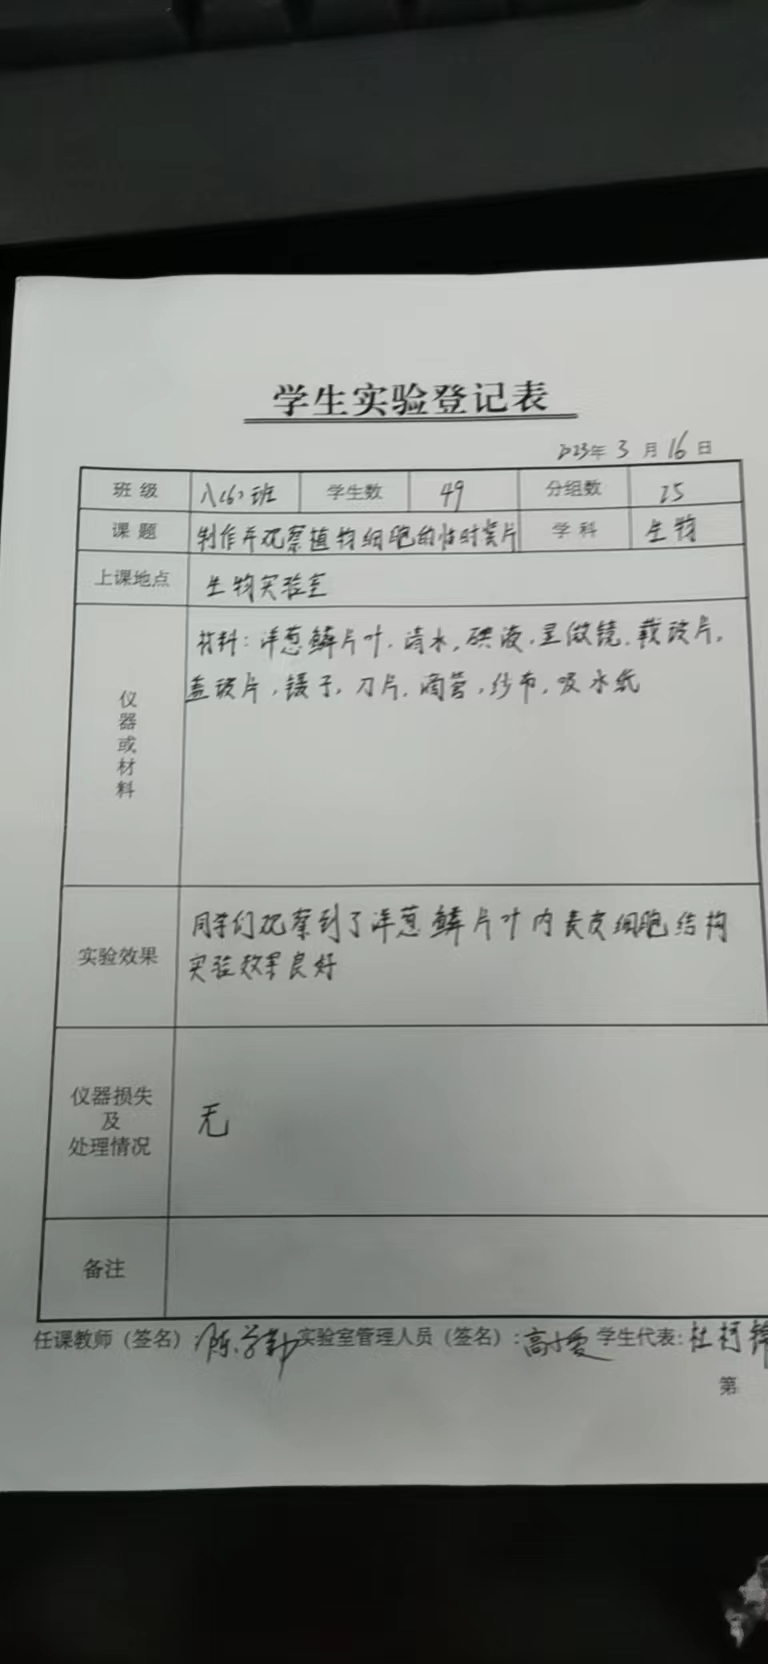 学生实验登记表
2023年 3 月 16 日
班 级 八(6)班 学生数 49 分组数 25
课 题 制作并观察植物细胞的临时装片 学 科 生物
上课地点 生物实验室
仪器或材料
材料: 洋葱鳞片叶, 清水, 碘液, 显微镜, 载玻片,
盖玻片, 镊子, 刀片, 滴管, 纱布, 吸水纸
实验效果
同学们观察到了洋葱鳞片叶内表皮细胞结构
实验效果良好
仪器损失
及
处理情况
无
备注
任课教师（签名） 实验室管理人员（签名）: 学生代表:
第